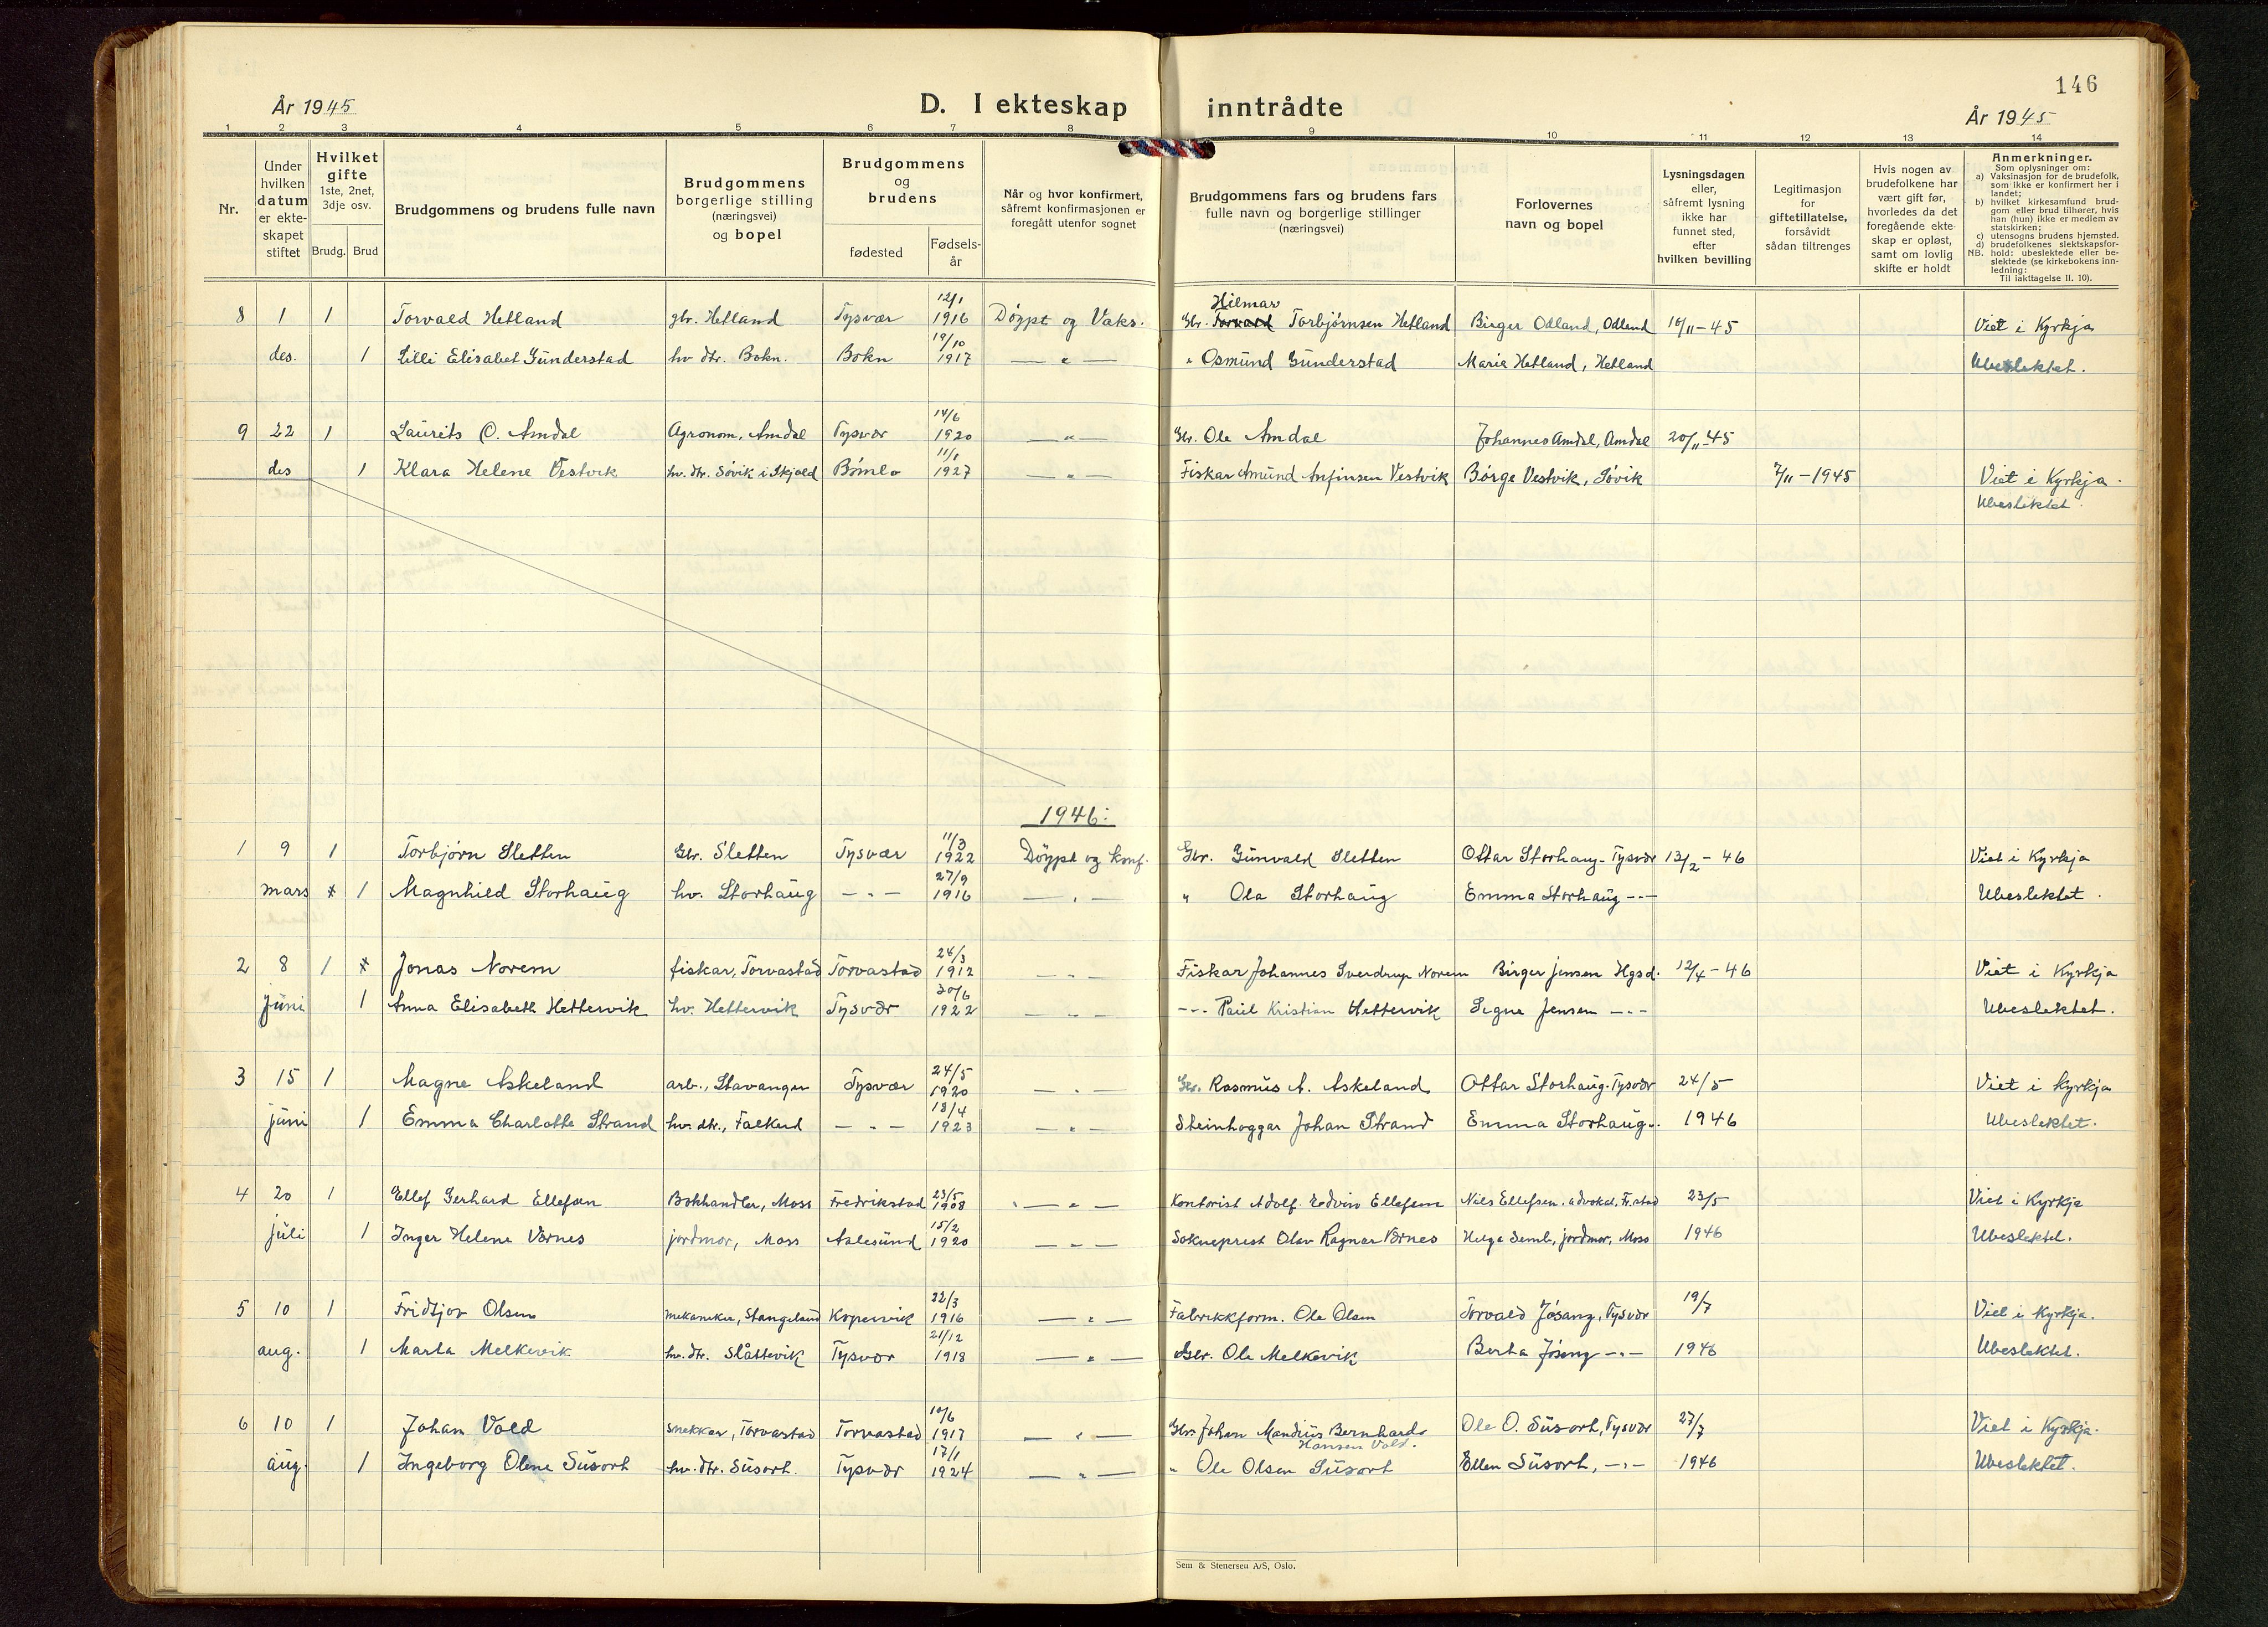 146
År 1945
D. I ekteskap inntrådte
År 1945
1 2 3 4 5 6 7 8 9 10 11 12 13 14
Nr.
Under hvilken datum er ekteskapet stiftet
Hvilket gifte 1ste, 2net, 3dje osv.
Brudg. Brud
Brudgommens og brudens fulle navn
Brudgommens borgerlige stilling (næringsvei) og bopel
Brudgommens og brudens
fødested
Fødselsår
Når og hvor konfirmert, såfremt konfirmasjonen er foregått utenfor sognet
Brudgommens fars og brudens fars fulle navn og borgerlige stillinger (næringsvei)
Forlovernes navn og bopel
Lysningsdagen eller, såfremt lysning ikke har funnet sted, efter hvilken bevilling
Legitimasjon for giftetillatelse, forsåvidt sådan tiltrenges
Hvis nogen av brudefolkene har vært gift før, hvorledes da det foregående ekteskap er opløst, samt om lovlig skifte er holdt
Anmerkninger.
Som oplysninger om:
a) Vaksinasjon for de brudefolk, som ikke er konfirmert her i landet;
b) hvilket kirkesamfund brudgom eller brud tilhører, hvis han (hun) ikke er medlem av statskirken;
c) utensogns brudens hjemsted.
d) brudefolkenes slektskapsforhold: ubeslektede eller beslektede (se kirkebokens innledning:
NB. Til iakttagelse II. 10).
8 1 1 Torvald Hetland gbr. Hetland Tysvær 12/1 1916 Døypt og Vaks. Gbr. Hilmar Torbjørnsen Hetland Birger Odland, Odland 16/11-45 Viet i Kyrkja
des. 1 Lilli Elisabet Gunderstad hv dtr. Bokn. Bokn 19/10 1917 — " — " Osmund Gunderstad Marie Hetland, Hetland Ubeslektet.
9 22 1 Laurits O. Amdal Agronom, Amdal Tysvær 14/6 1920 — " — Gbr. Ole Amdal Johannes Amdal, Amdal 20/11-45
des 1 Klara Helene Vestvik hv. dtr. Søvik i Skjold Bømlo 11/1 1927 — " — Fiskar Amund Anfinsen Vestvik Børge Vestvik, Søvik 7/11-1945 Viet i Kyrkja.
Ubeslektet.
1946:
1 9 1 Torbjørn Sletten Gbr. Sletten Tysvær 11/3 1922 Døypt og konf. Gbr. Gunvald Sletten Ottar Storhaug-Tysvær 13/2-46 Viet i Kyrkja
mars 1 Magnhild Storhaug hv. Storhaug — " — 27/9 1916 — " — " Ola Storhaug Emma Storhaug - " - Ubeslektet.
2 8 1 Jonas Norem fiskar, Torvastad Torvastad 24/3 1912 — " — Fiskar Johannes Sverdrup Norem Birger Jensen Hgsd. 12/4-46 Viet i Kyrkja
juni 1 Anna Elisabeth Hettervik hv. Hettervik Tysvær 30/6 1922 — " — - " - Paul Kristian Hettervik Signe Jensen - " - Ubeslektet.
3 15 1 Magne Askeland arb., Stavanger Tysvær 24/5 1920 — " — Gbr. Rasmus A. Askeland Ottar Storhaug-Tysvær 24/5 Viet i kyrkja
juni 1 Emma Charlotte Strand hv. dtr., Falkeid — " — 18/4 1923 — " — Steinhoggar Johan Strand Emma Storhaug - " 1946 Ubeslektet.
4 20 1 Ellef Gerhard Ellefsen Bokhandler, Moss Fredrikstad 23/5 1908 — " — Kontorist Adolf Edvin Ellefsen Nils Ellefsen, advokat, Fr.stad 23/5 Viet i Kyrkja
juli 1 Inger Helene Vårnes jordmor, Moss Aalesund 15/2 1920 — " — Sokneprest Olav Ragnar Vårnes Helga Semb, jordmor, Moss 1946 Ubeslektet.
5 10 1 Fridtjov Olsen mekaniker, Stangeland Kopervik 22/3 1916 — " — Fabrikkform. Ole Olsen Torvald Jøsang, Tysvær 19/7 Viet i Kyrkja.
aug. 1 Marta Melkevik hv. dtr. Slåttevik Tysvær 21/12 1918 — " — Gbr. Ole Melkevik Berta Jøsang - " - 1946 Ubeslektet.
6 10 1 Johan Vold snekker, Torvastad Torvastad 10/6 1917 — " — Gbr. Johan Mandius Bernhard Hansen Vold. Ole O. Susort, Tysvær 27/7 Viet i Kyrkja.
aug. 1 Ingeborg Olene Susort hv. dtr. Susort. Tysvær 17/1 1924 — " — " Ole Olsen Susort Ellen Susort, - " - 1946 Ubeslektet.
Sem & Stenersen A/S, Oslo.